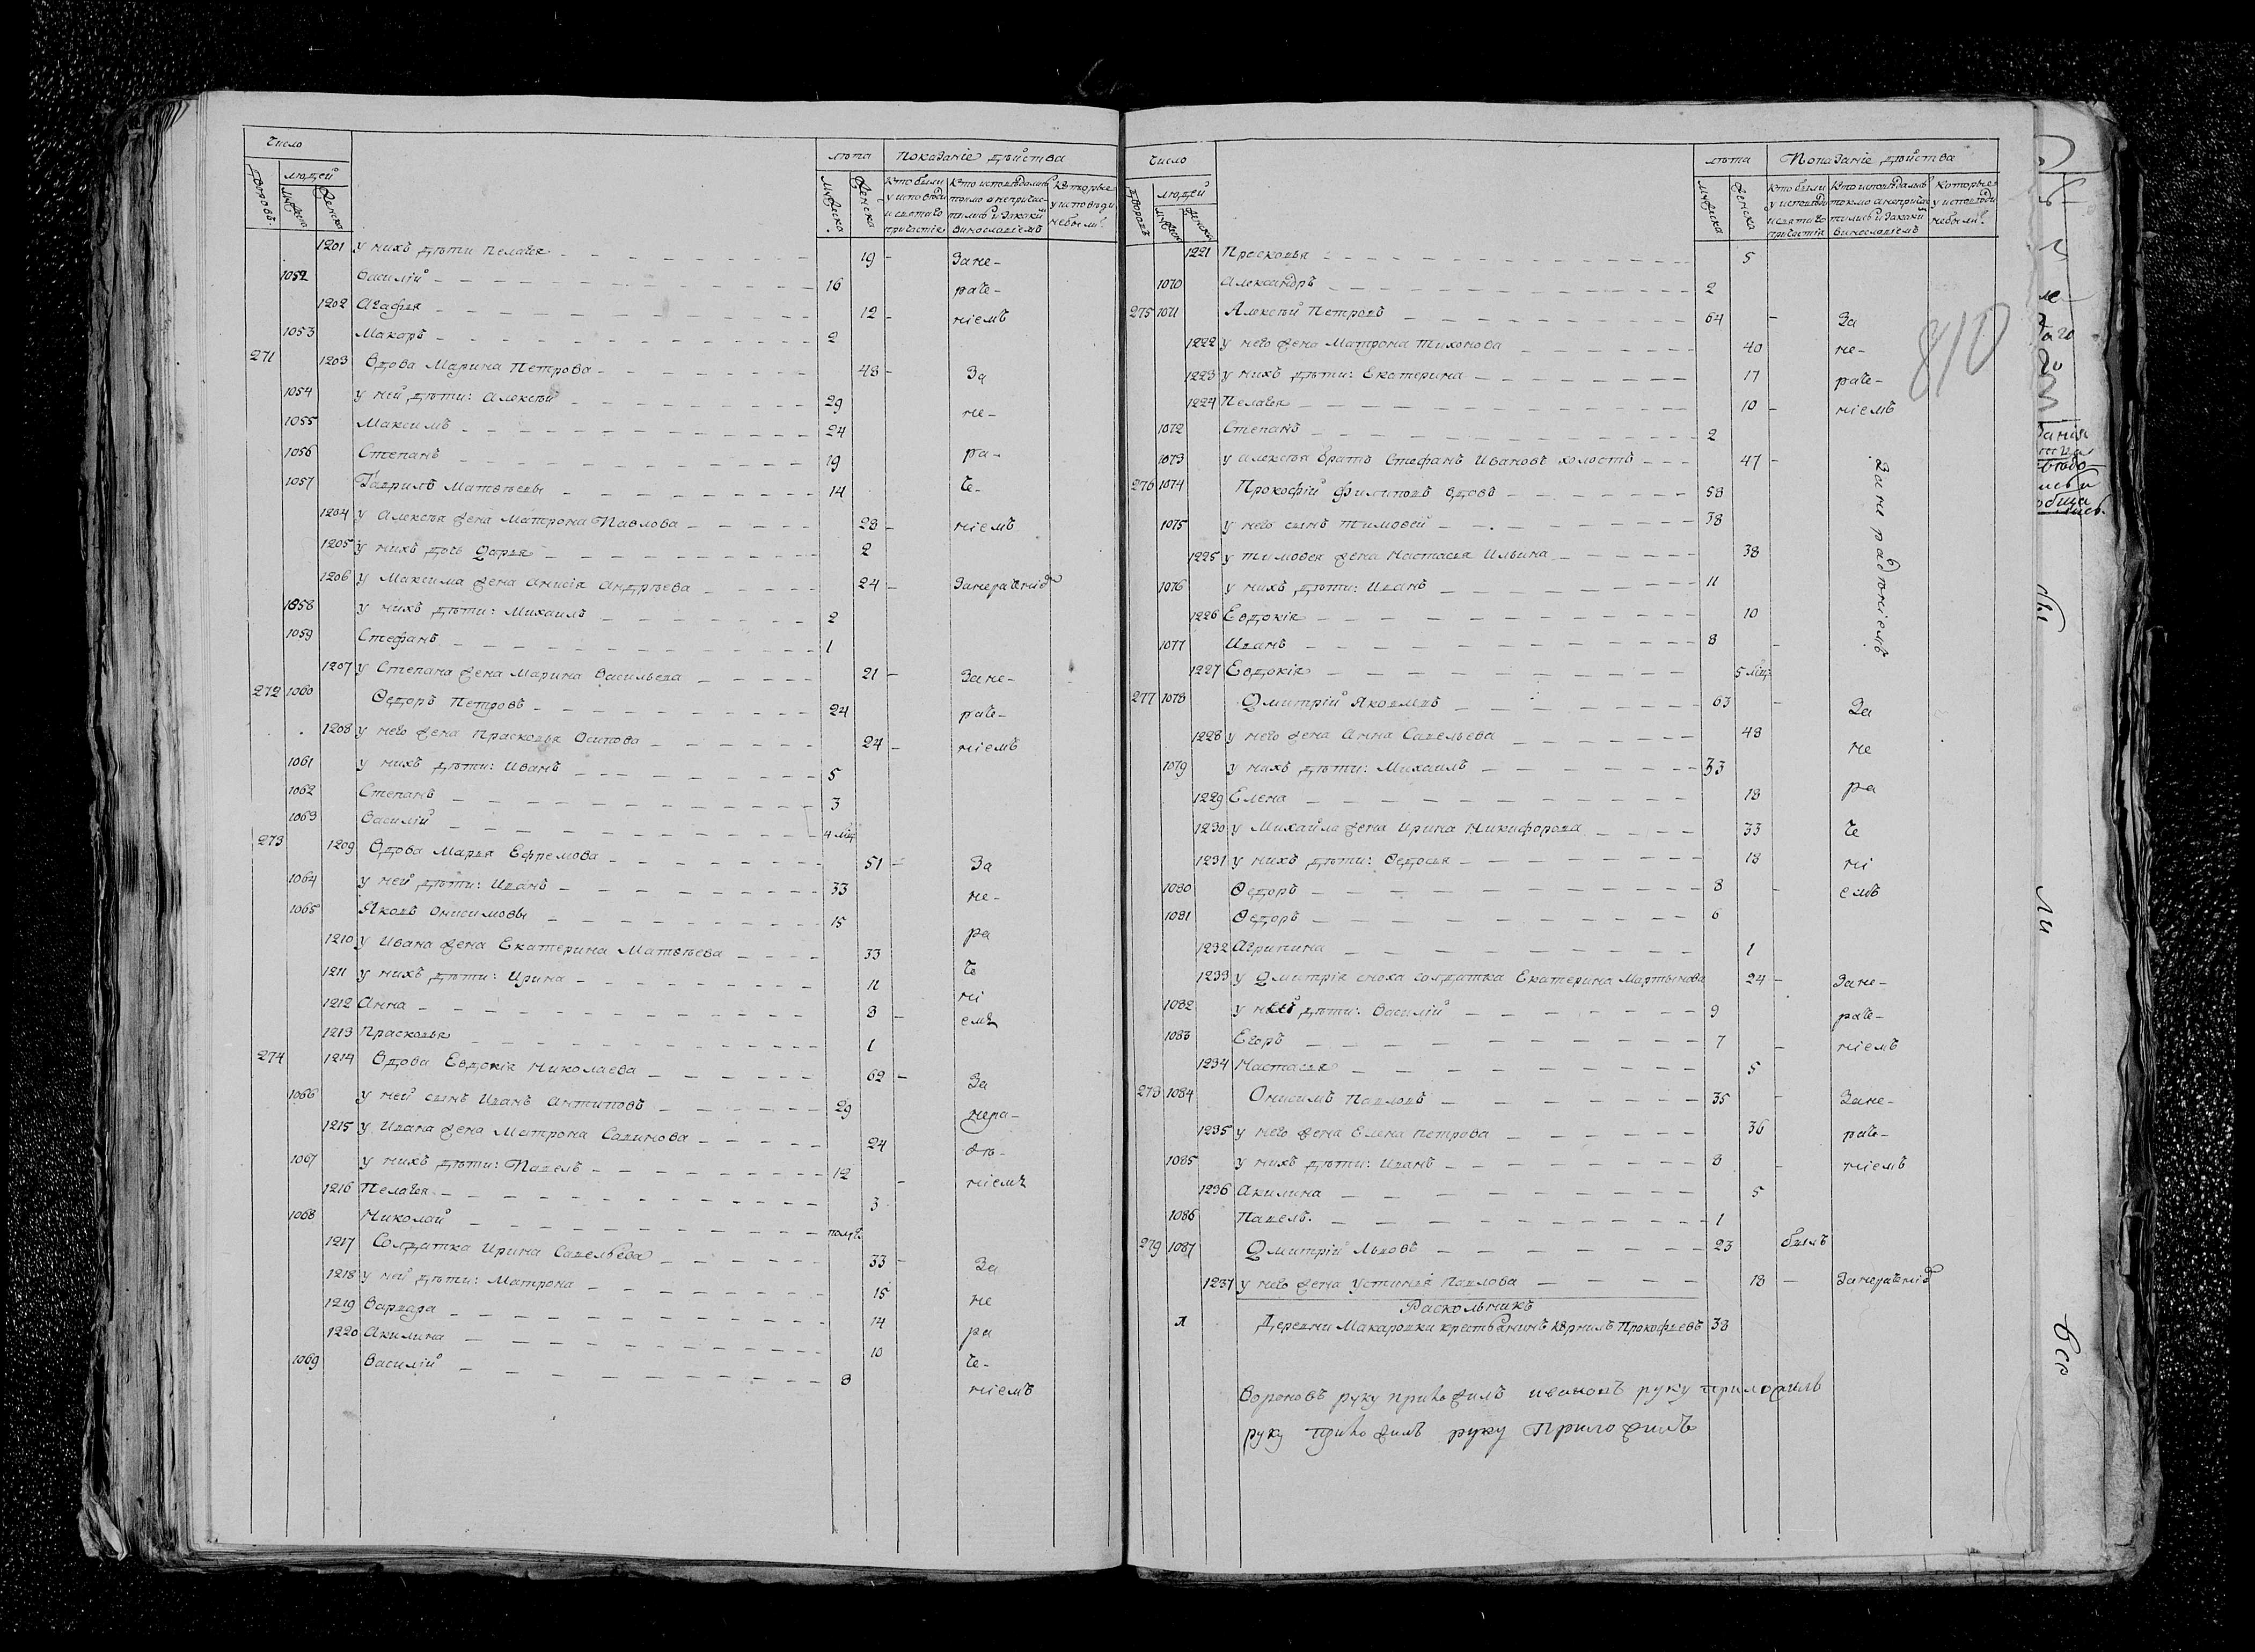 Число
людей
Дворовъ.
Муж: ска
Женска
лѣта
Показаніе дѣйства
Мужеска.
Женска
Кто были у исповѣди и святаго причастія
Кто исповѣдались токмо а непричастились и за какой винословіемъ
Которые у исповѣди небыли.
1201 у нихъ дѣти Пелагея 19 - Зане-
1052 Василій 16 раче-
1202 Агафья 12 - ніемъ
1053 Макаръ 2
271 1203 Вдова Марина Петрова 48 - За
1054 у ней дѣти: Алексѣй 29 не-
1055 Максимъ 24
1056 Степанъ 19 ра-
1057 Гаврилъ Матвѣевы 14 че-
1204 у Алексѣя жена Матрона Павлова 28 - ніемъ
1205 у нихъ дочь Дарья 2
1206 у Максима жена Анисія Андрѣева 24 - Занераченіе
1058 у нихъ дѣти: Михаилъ 2
1059 Стефанъ 1
1207 у Степана жена Марина Васильева 21 - Зане-
272 1060 Ѳедоръ Петровъ 24 раче-
1208 у него жена Прасковья Осипова 24 - ніемъ
1061 у нихъ дѣти: Иванъ 5
1062 Степанъ 3
1063 Василій 4 мѣц
273 1209 Вдова Марья Ефремова 51 - За
1064 у ней дѣти: Иванъ 33 не-
1065 Яковъ Онисимовы 15
1210 у Ивана жена Екатерина Матвѣева 33 ра
1211 у нихъ дѣти: Ирина 11 че
1212 Анна 8 - ні
1213 Прасковья 1 емъ
274 1214 Вдова Евдокія Николаева 62 - За
1066 у ней сынъ Иванъ Антиповъ 29 нера-
1215 у Ивана жена Матрона Савинова 24 дѣ-
1067 у нихъ дѣти: Павелъ 12 - ніемъ
1216 Пелагея 3
1068 Николай полгода
1217 Солдатка Ирина Савельева 33 - За
1218 у ней дѣти: Матрона 15 не
1219 Варвара 14 ра
1220 Акилина 10 че-
1069 Василій 8 ніемъ
Число
людей
Дворовъ
Муж: ска
Женска
лѣта
Показаніе дѣйства
Мужеска
Женска
Кто были у исповѣди и святаго причастія
Кто исповѣдались токмо а непричастились и за какой винословіемъ
Которые у исповѣди небыли.
1221 Прасковья 5
1070 Александръ 2
810
275 1071 Алексѣй Петровъ 64 - За
1222 у него жена Матрона Тихонова 40 не-
1223 у нихъ дѣти: Екатерина 17 раче-
1224 Пелагея 10 - ніемъ
1072 Степанъ 2
1073 у Алексѣя братъ Стефанъ Ивановъ холостъ 47 -
Занерадѣніемъ
276 1074 Прокофій Филиповъ вдовъ 58
1075 у него сынъ Тимофей 38
1225 у Тимофея жена Настасья Ильина 38
1076 у нихъ дѣти: Иванъ 11
1226 Евдокія 10
1077 Иванъ 8 -
1227 Евдокія 5 мѣц
277 1078 Дмитрій Яковлевъ 63 - За
1228 у него жена Анна Савельева 48 не
1079 у нихъ дѣти: Михаилъ 33
1229 Елена 18 ра
1230 у Михайла жена Ирина Никифорова 33 че
1231 у нихъ дѣти: Ѳедосья 18 ні
1080 Ѳедоръ 8 - емъ
1081 Ѳедоръ 6
1232 Агрипина 1
1233 у Дмитрія сноха солдатка Екатерина Мартынова 24 - Зане-
1082 у ней дѣти: Василій 9 раче-
1083 Егоръ 7 - ніемъ
1234 Настасья 5
278 1084 Онисимъ Павловъ 35 - Зане-
1235 у него жена Елена Петрова 36 раче-
1085 у нихъ дѣти: Иванъ 8 - ніемъ
1236 Акилина 5
1086 Павелъ. 1
279 1087 Дмитрій Львовъ 23 былъ
1237 у него жена Устинья Павлова 18 - Занераченіе
Раскольникъ
Деревни Макаровки крестьянинъ Корнилъ Прокофьевъ 38
Вороновъ руку приложилъ ивановъ руку приложилъ
руку приложилъ руку Приложилъ